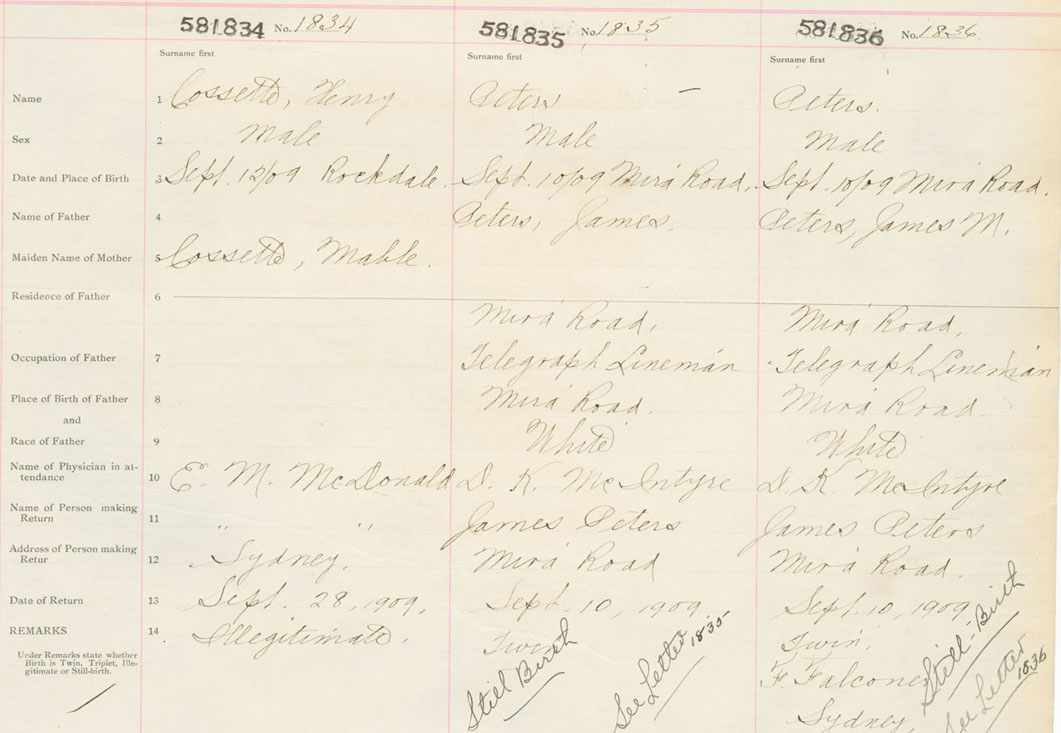 581834 No. 1834 581835 No. 1835 581836 No. 1836
Surname first Surname first Surname first
Name 1 Cossette, Henry Peters — Peters.
Sex 2 Male Male Male
Date and Place of Birth 3 Sept. 12/09 Rockdale. Sept. 10/09 Mira Road. Sept. 10/09 Mira Road.
Name of Father 4 Peters, James. Peters, James M.
Maiden Name of Mother 5 Cossette, Mable.
Residence of Father 6 Mira Road, Mira Road,
Occupation of Father 7 Telegraph Lineman Telegraph Lineman
Place of Birth of Father 8 Mira Road. Mira Road.
and
Race of Father 9 White White
Name of Physician in at-
tendance 10 E. M. McDonald D. K. McIntyre D. K McIntyre
Name of Person making
Return 11 " " James Peters James Peters
Address of Person making
Retur 12 Sydney. Mira Road Mira Road.
Date of Return 13 Sept. 28, 1909. Sept. 10, 1909. Sept. 10, 1909.
REMARKS 14 Illegitimate. Twin Twin.
Under Remarks state whether
Birth is Twin, Triplet, Ille-
gitimate or Still-birth.
Still Birth
See Letter 1835
F. Falconer
Sydney,
Still-Birth
See Letter 1836